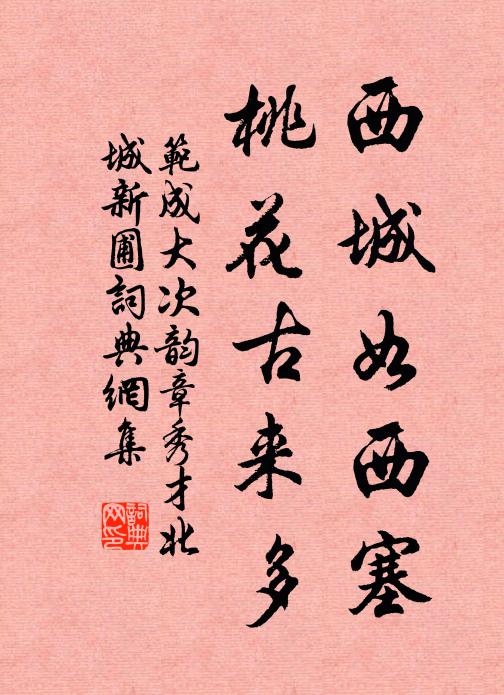 西城如西塞
桃花古来多
範成大次韵章秀才北
城新圃詞典網集
詞典
网印